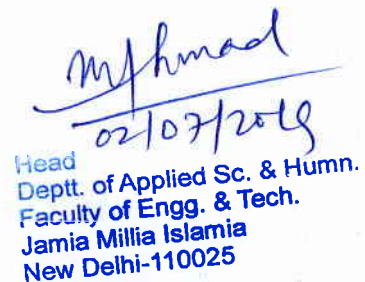 MAhmad
02/07/2019
Head
Deptt. of Applied Sc. & Humn.
Faculty of Engg. & Tech.
Jamia Millia Islamia
New Delhi-110025